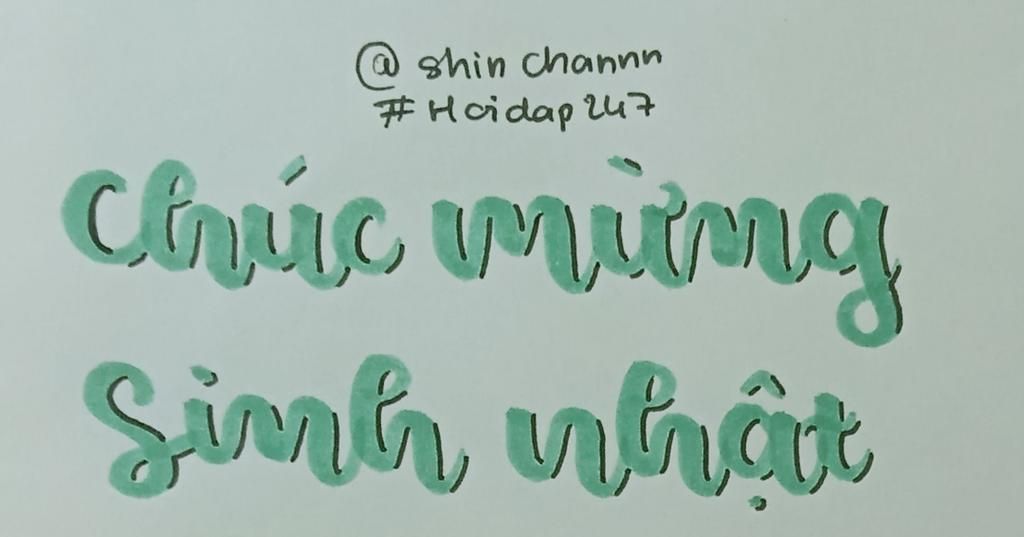 @ shin channn
#Hoidap247
Chúc mừng
Sinh nhật